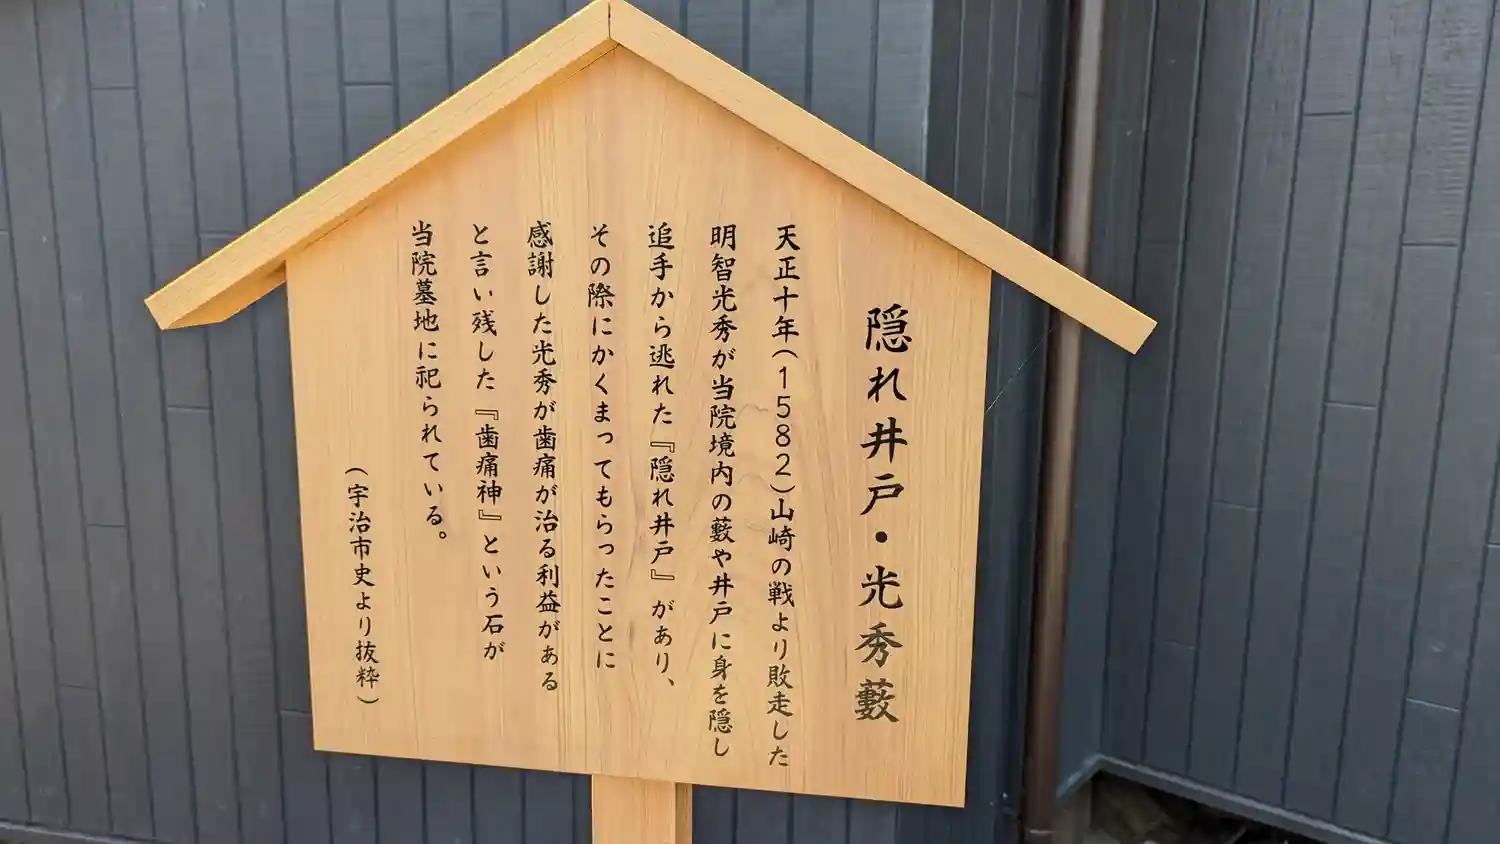 隠れ井戸・光秀藪
天正十年(1582)山崎の戦より敗走した
明智光秀が当院境内の藪や井戸に身を隠し
追手から逃れた『隠れ井戸』があり、
その際にかくまってもらったことに
感謝した光秀が歯痛が治る利益がある
と言い残した『歯痛神』という石が
当院墓地に祀られている。
(宇治市史より抜粋)